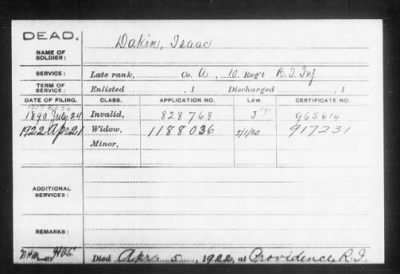 DEAD.
NAME OF SOLDIER: Dakin, Isaac
SERVICE: Late rank, Co. A, 10 Reg't R.I. Inf
TERM OF SERVICE: Enlisted , 1 Discharged , 1
DATE OF FILING. CLASS. APPLICATION NO. LAW. CERTIFICATE NO.
1890 July 24 Invalid, 828768 965614
1922 Apr 21 Widow, 1188036 5/1/20 917231
Minor,
ADDITIONAL SERVICES:
Died Apr. 5, 1922, at Providence R.I.